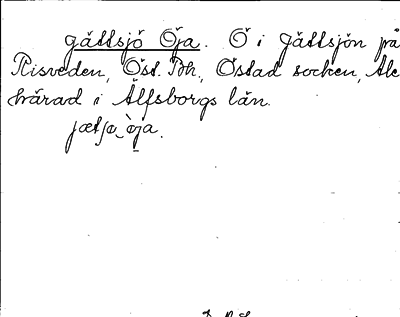 gättsjö Öja. Ö i Jättsjön på
Risveden, Öst. Bh., Östad socken, Ale
härad i Älfsborgs län.